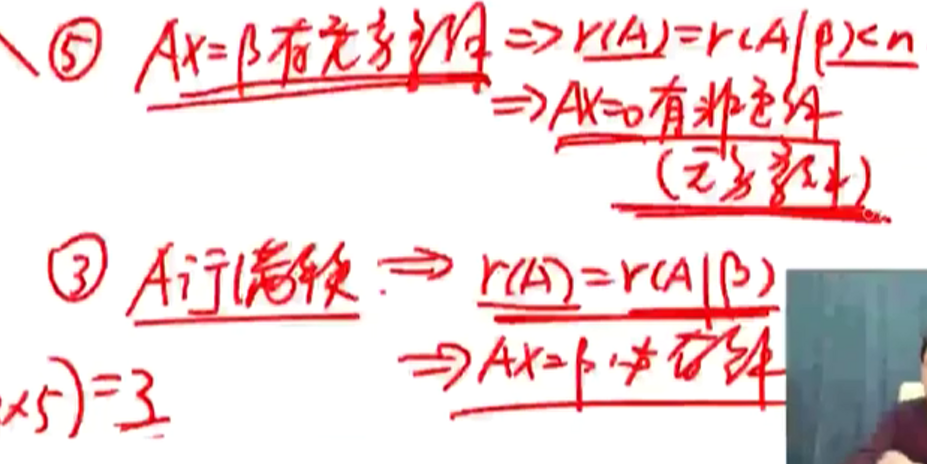 ⑤ AX=β有无穷多解 ⇒ r(A)=r(A|β)<n
⇒ AX=0有非零解
(无穷多解)
③ A行满秩 ⇒ r(A)=r(A|β)
⇒ AX=β必有解
×5)=3